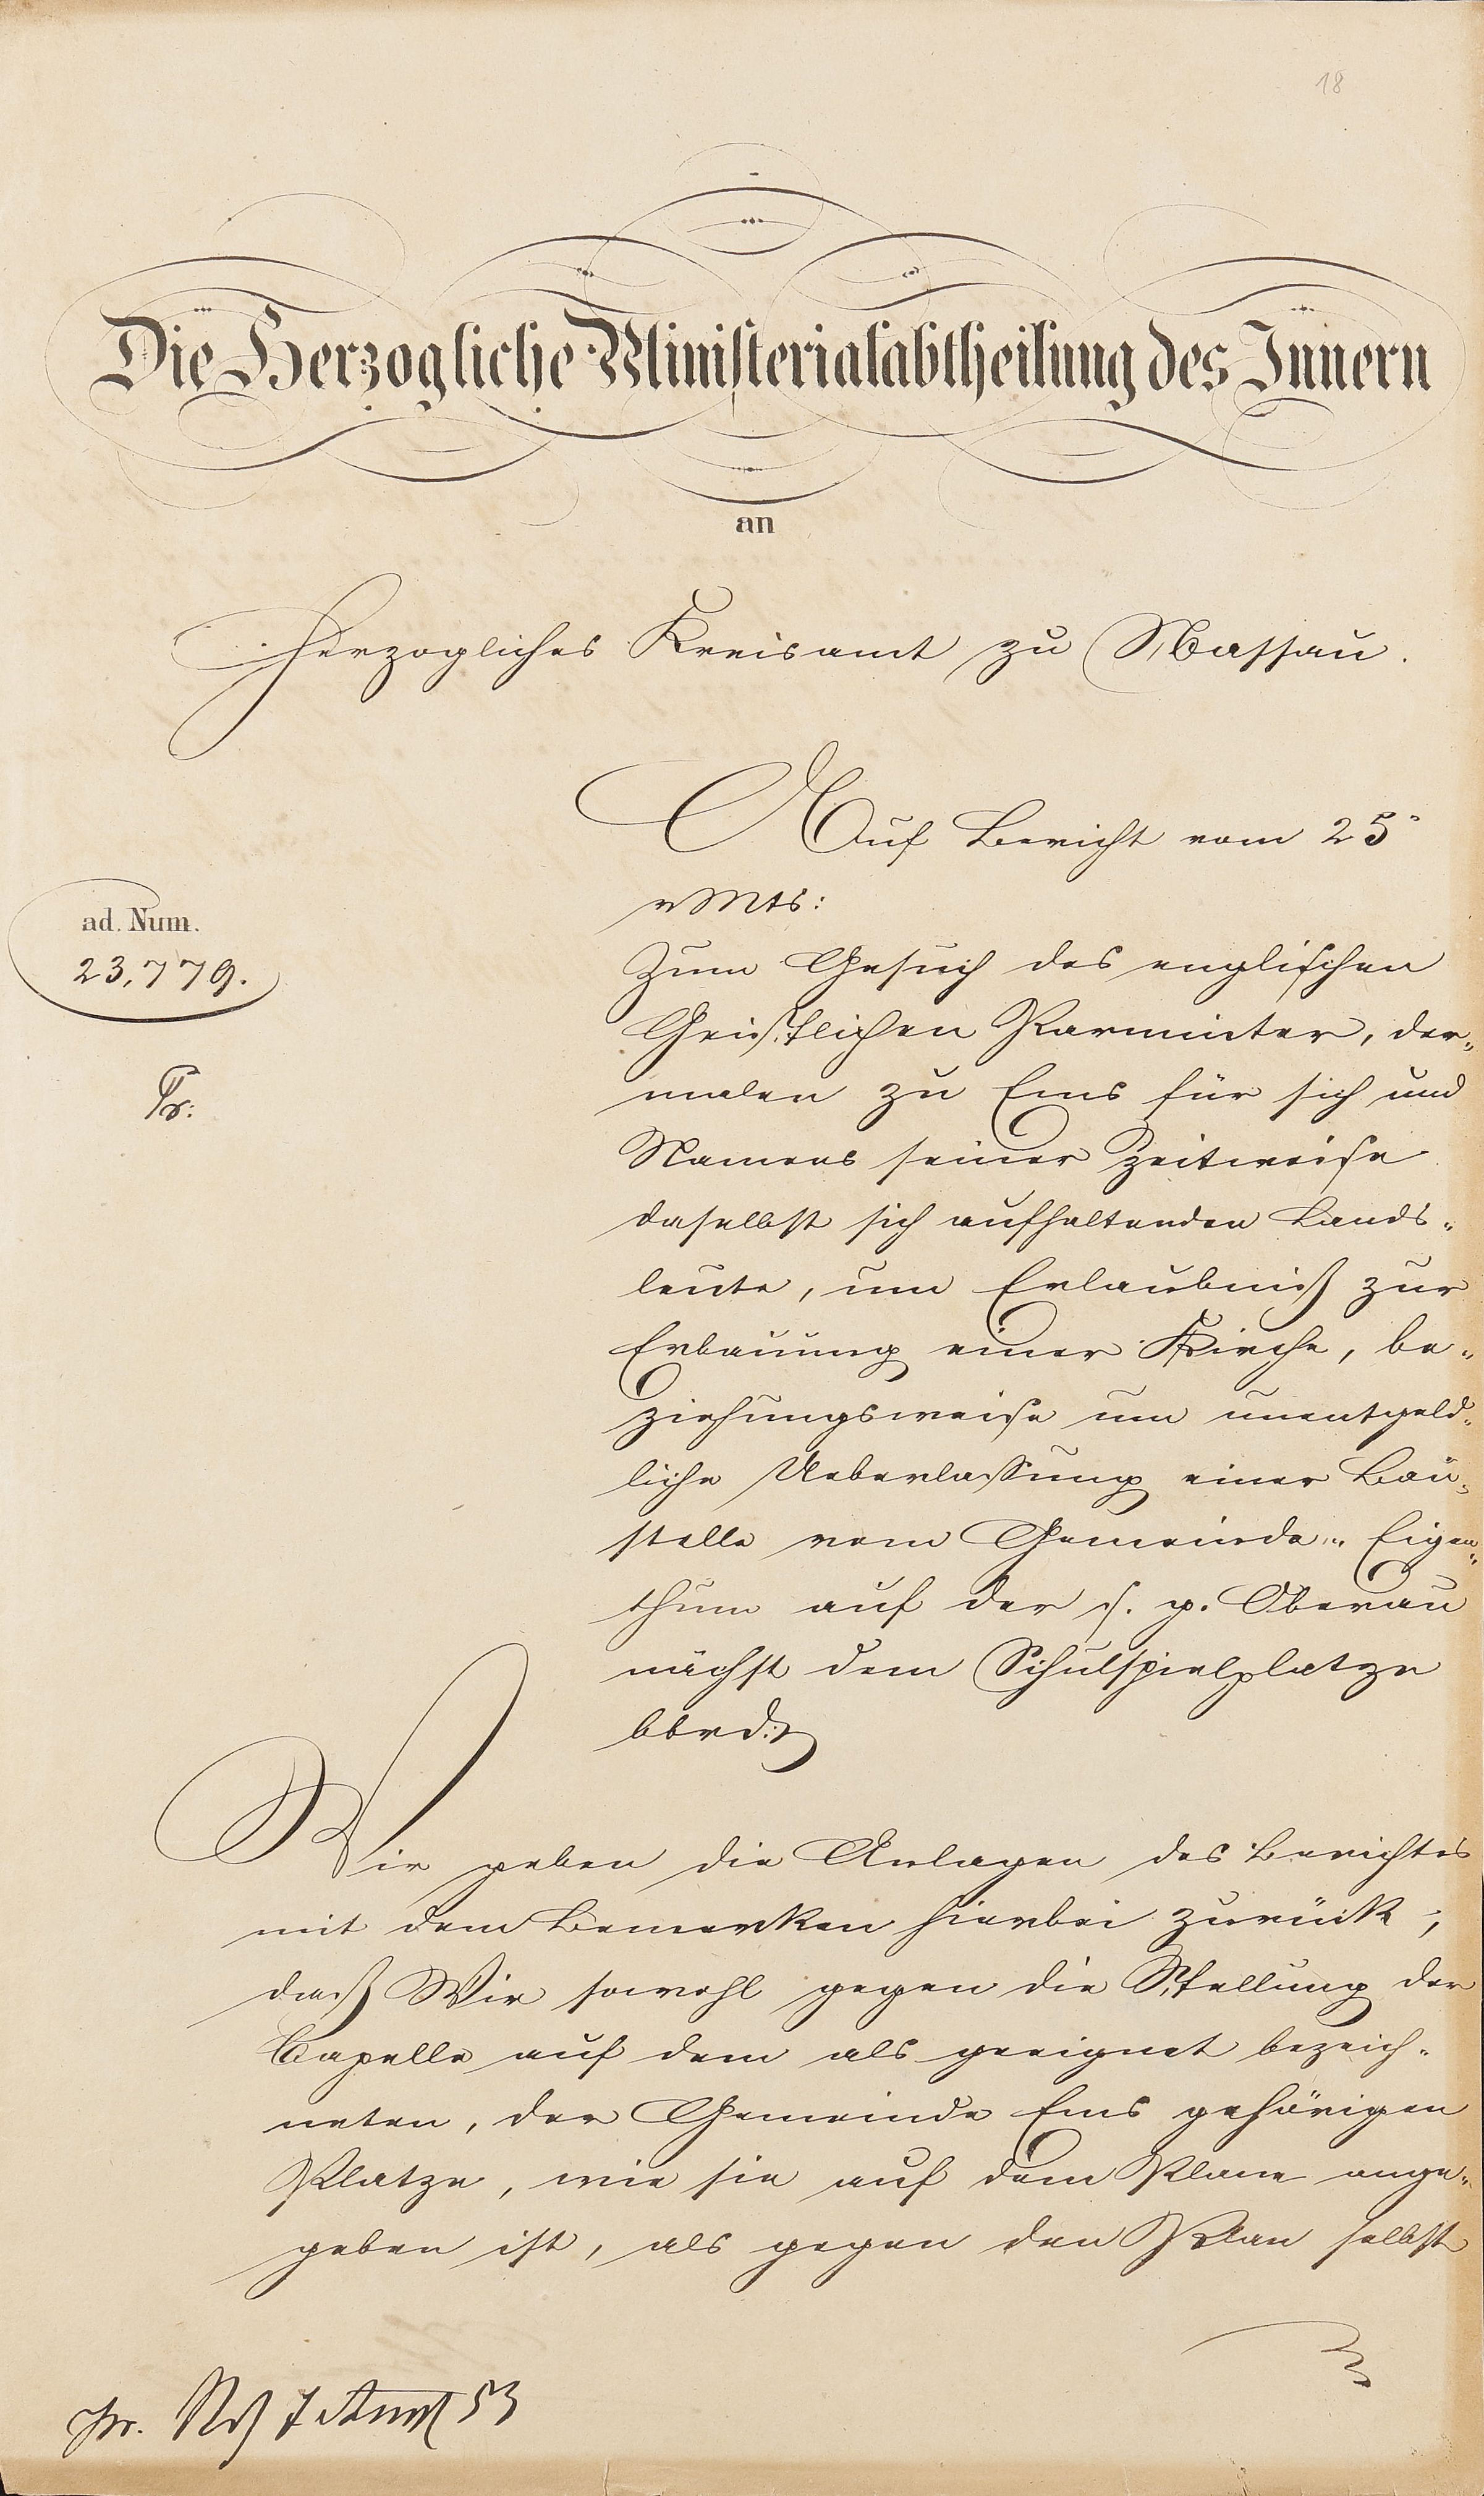 18
Die Herzogliche Ministerialabtheilung des Innern
an
Herzogliches Kreisamt zu Nassau.
Auf Bericht vom 25"
v Mts:
ad. Num.
23,779.
Zum Gesuch des englischen
Geistlichen Parminter, der„
malen zu Ems für sich und
Pr:
Namens seiner zeitweise
daselbst sich aufhaltenden Lands„
leute, um Erlaubniß zur
Erbauung einer Kirche, be„
ziehungsweise um unentgeld„
liche Ueberlassung einer Bau„
stelle vom Gemeinde„ Eigen„
thum auf der s. g. Oberau
nächst dem Schulspielplatze
bbrd:
Wir geben die Anlagen des Berichtes
mit dem Bemerken hierbei zurück,
daß Wir sowohl gegen die Stellung der
Capelle auf dem als geeignet bezeich„
neten, der Gemeinde Ems gehörigen
Platze, wie sie auf dem Plane ange„
geben ist, als gegen den Plan selbst
pr. 7 53